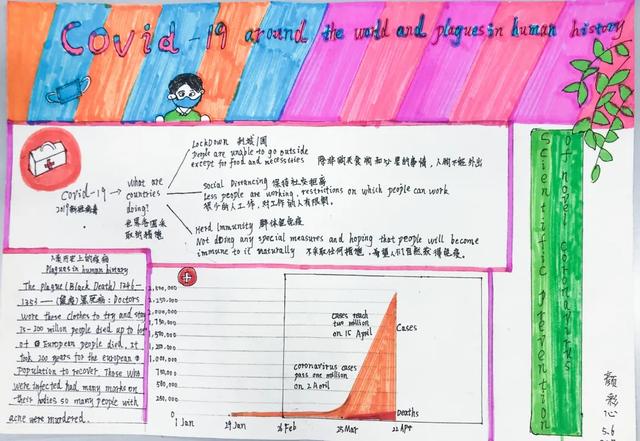 Covid-19 around the world and plagues in human history
LockDown 封城/国
People are unable to go outside
except for food and necessities 除非购买食物和必要的事情，人们不能外出
Social Distancing 保持社交距离
Less people are working, restrictions on which people can work
很少的人工作，对工作的人有限制。
Herd Immunity 群体免疫
Not doing any special measures and hoping that people will become
immune to it naturally 不采取任何措施，希望人们自然获得免疫。
Covid-19
2019新冠病毒
what are
countries
doing?
世界各国采
取的措施
人类历史上的疾病
Plagues in human history
The plague (Black Death) 1346-
1353 — (鼠疫) 黑死病: Doctors
wore these clothes to try and stay
75-200 million people tied up to
of European people died. It
took 200 years for the european
population to recover. Those who
were infected had many marks on
their bodies so many people with
acne were murdered.
2,500,000
2,250,000
2,000,000
1,750,000
1,500,000
1,250,000
1,000,000
750,000
500,000
250,000
0
cases reach
two million
on 15 April
coronavirus cases
pass one million
on 2 April
Cases
Deaths
1 Jan
29 Jan
26 Feb
25 Mar
22 Apr
Scientific prevention
of novel coronavirus
颜彩心
5.6